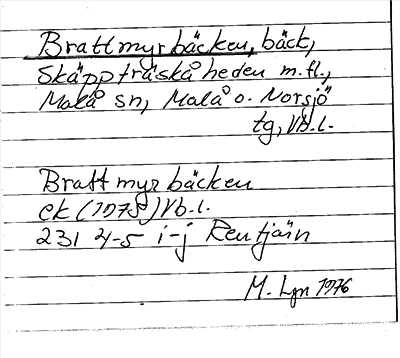 Brattmyrbäcken, bäck,
Skäppträskåheden m.fl.,
Malå sn, Malå o. Norsjö
tg, Vb.l.
Brattmyrbäcken
ek (1978) Vb.l.
231 4-5 i-j Rentjärn
M. Lgn 1976